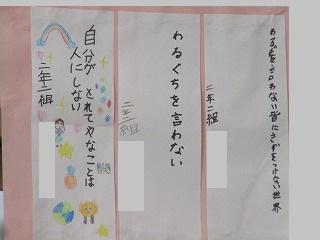 わる口を言わない皆にきずをつけない世界
二年二組
わるぐちを言わない
二年二組
自分が されてやなことは
人にしない
二年二組